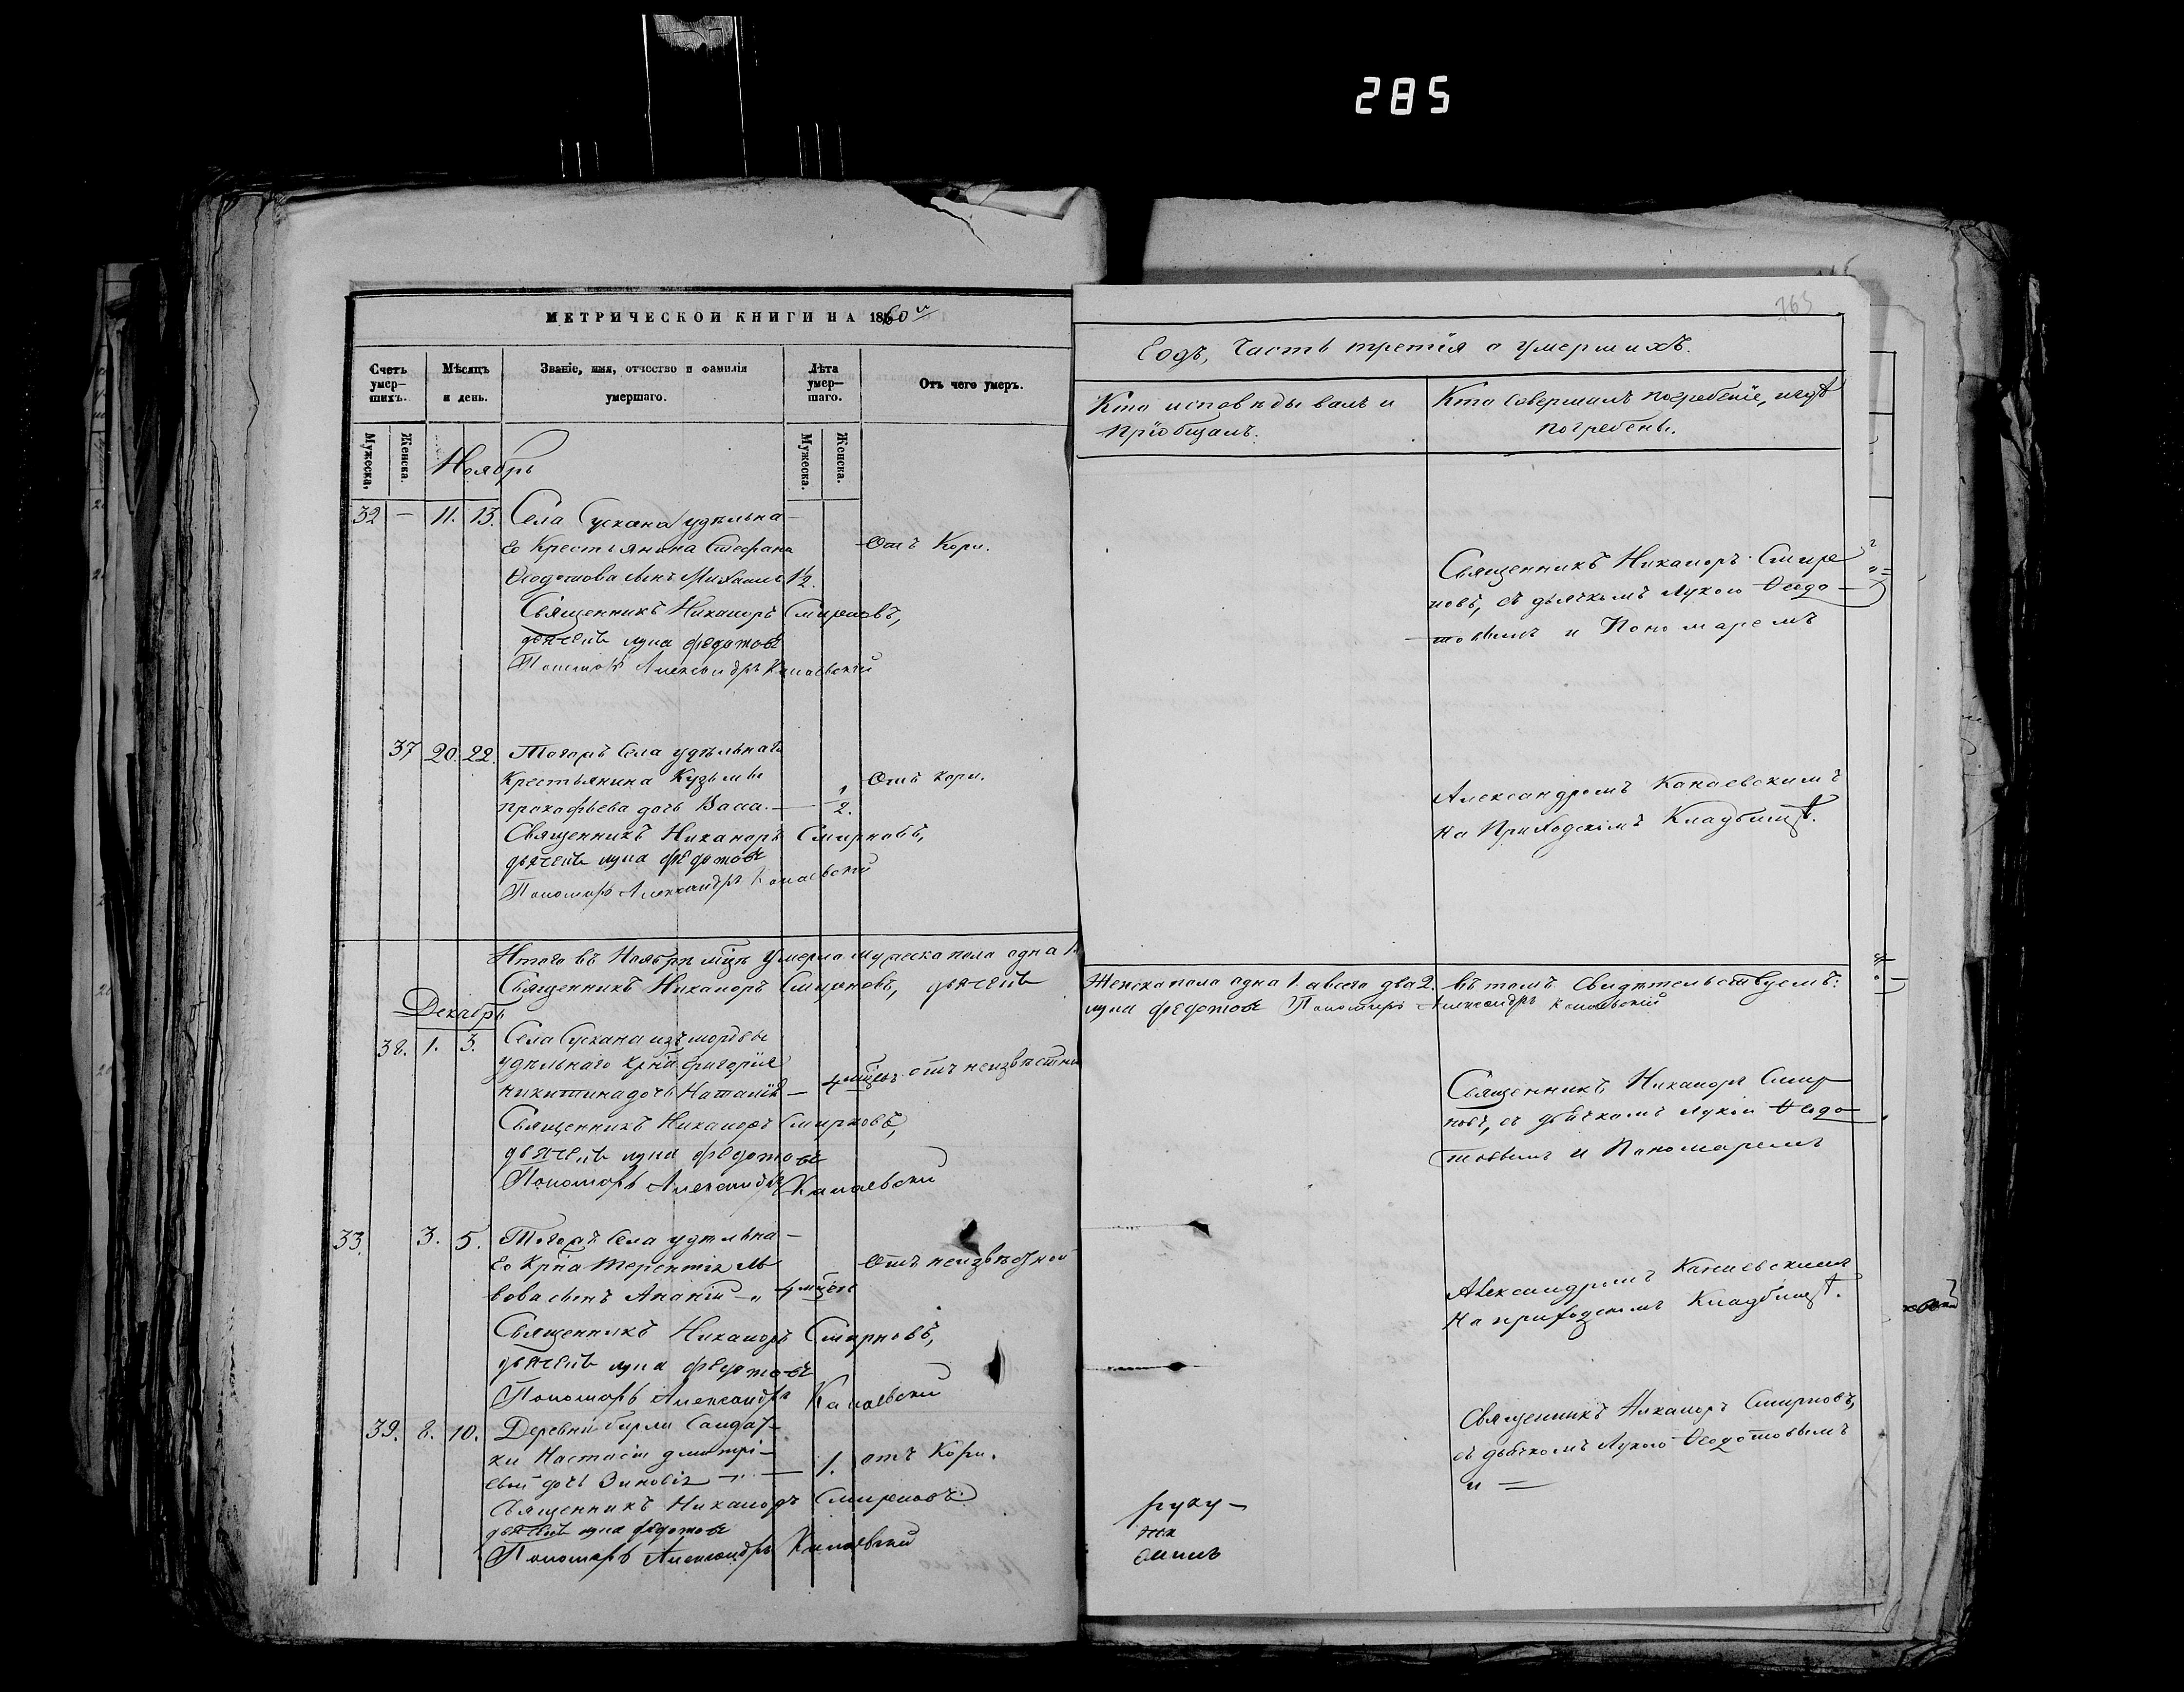 285
МЕТРИЧЕСКОЙ КНИГИ НА 1860й
Счетъ умер-шихъ.
Мѣсяцъ и день.
Званіе, имя, отчество и фамилія умершаго.
Лѣта умер-шаго.
Отъ чего умеръ.
Мужеска.
Женска.
Мужеска.
Женска.
Ноябрь
32 — 11. 13. Села Сускана удѣльна-
го Крестьянина Стефана Отъ Кори.
Ѳеодотова сынъ Михаилъ 1½.
Священникъ Никаноръ Смирновъ,
дьячекъ лука федотовъ
Пономарь Александръ Канаевскій
37 20. 22. Тогожъ Села удѣльнаго
Крестьянина Кузьмы Отъ кори.
Прокофьева дочь Васса. — ½.
Священникъ Никаноръ Смирновъ,
дьячекъ лука федотовъ
Пономарь Александръ Канаевскій
Итого въ Ноябрѣ мцѣ умерло мужеска пола одна 1.
Священникъ Никаноръ Смирновъ, дьячекъ
Декабрь
38. 1. 3. Села Сускана изъ мордвы
удѣльнаго крна Григорія
Никитина дочь Наталія — 4 мцвъ. отъ неизвѣстной
Священникъ Никаноръ Смирновъ,
дьячекъ лука федотовъ
Пономарь Александръ Канаевскій
33. 3. 5. Тогожъ Села удѣльна-
го Крна Терентія Ль Отъ неизвѣстной
вова сынъ Ананій — 4 мцевъ
Священникъ Никаноръ Смирновъ,
дьячекъ лука федотовъ
Пономарь Александръ Канаевскій
39. 8. 10. Деревни бирли Солдат-
ки Настасіи дмитрі-
евой дочь Зиновія — 1. отъ Кори.
Священникъ Никаноръ Смирновъ
дьячекъ лука федотовъ
Пономарь Александръ Канаевскій
765
Годъ, Часть третія о умершихъ.
Кто исповѣдывалъ и пріобщалъ.
Кто совершалъ погребеніе, и гдѣ погребены.
Священникъ Никаноръ Смир
новъ, съ дьячкомъ Лукою Ѳеодо-
товымъ и Пономаремъ
Александромъ Канаевскимъ
На Приходскомъ Кладбищѣ.
Женска пола одна 1. а всего два 2. въ томъ свидѣтельствуемъ:
лука федотовъ Пономарь Александръ Канаевскій
Священникъ Никаноръ Смир
новъ, съ дьячкомъ Лукою Ѳеодо-
товымъ и Пономаремъ
Александромъ Канаевскимъ
На приходскомъ Кладбищѣ.
Священникъ Никаноръ Смирновъ,
съ дьячкомъ Лукою Ѳеодотовымъ
и =
руку-